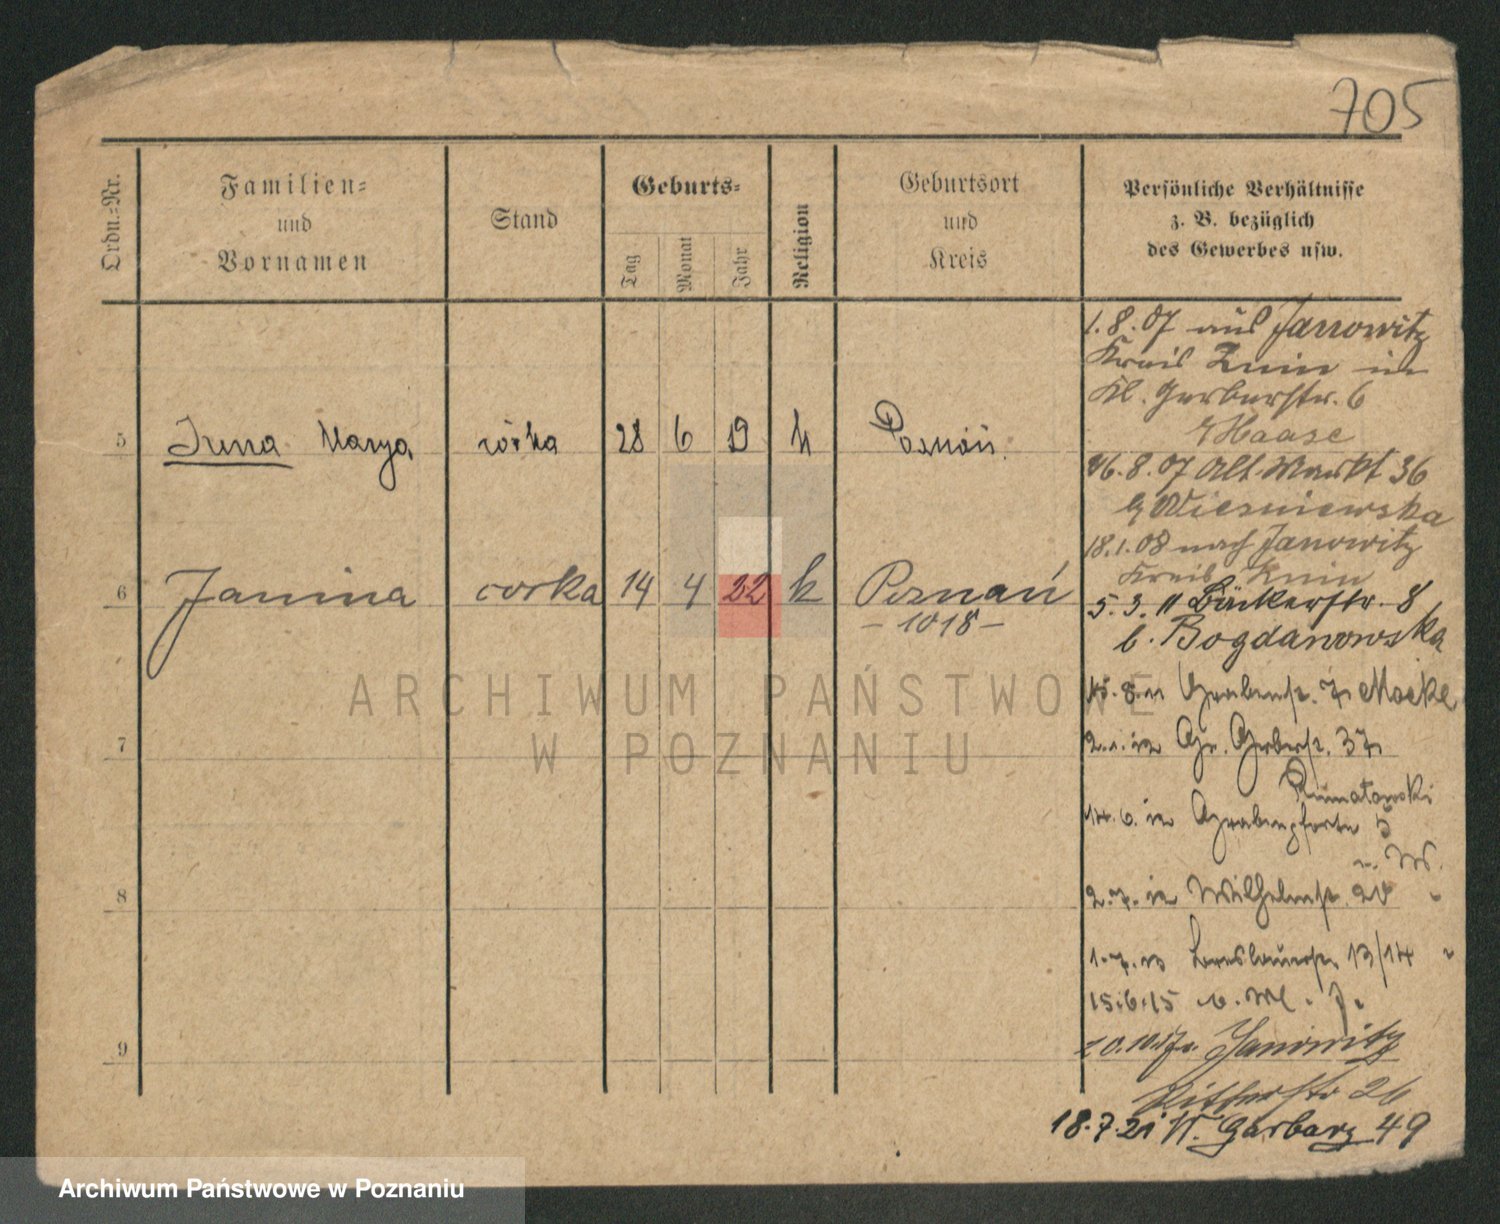 705
Ordn.-Nr.
Familien-
und
Vornamen
Stand
Geburts-
Tag
Monat
Jahr
Religion
Geburtsort
und
Kreis
Persönliche Verhältnisse
z. B. bezüglich
des Gewerbes usw.
1.8.07 aus Janowitz
Kreis Znin in
Kl. Gerberstr. 6
Haase
5 Irena Marya córka 28 6 19 k Poznań.
16.8.07 Alt. Markt 36
Wiesniewska
18.1.08 nach Janowitz
Kreis Znin
6 Janina corka 14 4 22 k Poznań
- 1018 -
5.3.11 Bäckerstr. 8
b. Bogdanowska
15.8.11 Grabenstr. 7
7
2.1.12 Gr. Gerberstr. 37
14.6.12 Grabenpforte 5
8
2.7.12 Wilhelmstr. 20
1.7.13 Breslauerstr. 13/14
15.6.15
9
20.10.17 Janowitz
Ritterstr 26
18.7.21 W. Garbary 49
ARCHIWUM PAŃSTWOWE
W POZNANIU
Archiwum Państwowe w Poznaniu